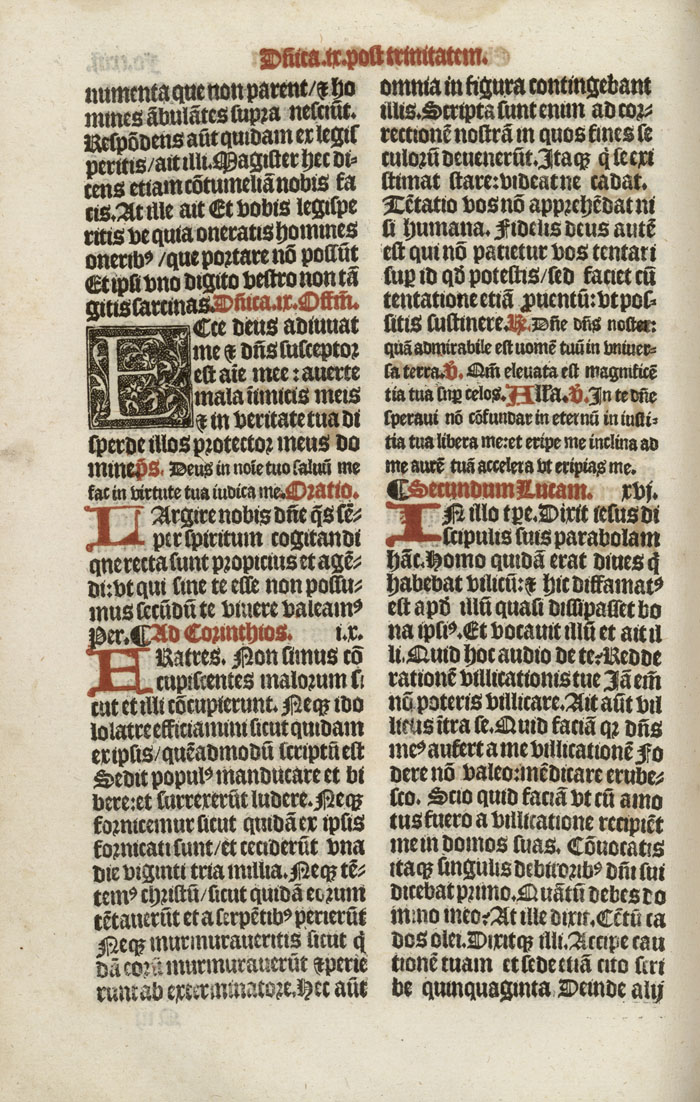 Dñica.ix.post trinitatem.
numenta que non parent/⁊ ho
mines ãbulãtes supra nesciũt.
Respõdens aũt quidam ex legis
peritis/ait illi. Magister hec di-
cens etiam cõtumeliã nobis fa
cis. At ille ait Et vobis legispe
ritis ve quia oneratis homines
oneribꝰ/que portare nõ possũt
Et ipsi vno digito vestro non tã
gitis sarcinas. Dñica.ix. Offm̃.
ECce deus adiuuat
me ⁊ dñs susceptor
est aĩe mee: auerte
mala ĩimicis meis
⁊ in veritate tua di
sperde illos protector meus do
mine p̃s. Deus in noĩe tuo saluũ me
fac in virtute tua iudica me. Oratio.
LArgire nobis dñe q̃s sẽ-
per spiritum cogitandi
que recta sunt propicius et agẽ-
di: vt qui sine te esse non possu-
mus secũdũ te viuere valeamꝰ
Per. ¶ Ad Corinthios. i.x.
FRatres. Non simus cõ
cupiscentes malorum si
cut et illi cõcupierunt. Neqꝫ ido
lolatre efficiamini sicut quidam
ex ipsis/quẽadmodũ scriptũ est
Sedit populꝰ manducare et bi
bere: et surrexerũt ludere. Neqꝫ
fornicemur sicut quidã ex ipsis
fornicati sunt/et ceciderũt vna
die viginti tria millia. Neqꝫ tẽ-
temꝰ christũ/sicut quidã eorum
tẽtauerũt et a serpẽtibꝰ perierũt
Neqꝫ murmuraueritis sicut q̃
dã corũ murmurauerũt ⁊ perie
runt ab exterminatore. Hec aũt
omnia in figura contingebant
illis. Scripta sunt enim ad cor-
rectionẽ nostrã in quos fines se
culorũ deuenerũt. Itaqꝫ q̃ se exi
stimat stare: videat ne cadat.
Tẽtatio vos nõ apprehẽdat ni
si humana. Fidelis deus autẽ
est qui nõ patietur vos tentari
suꝑ id qđ potestis/sed faciet cũ
tentatione etiã ꝓuentũ: vt pos-
sitis sustinere. ℟. Dñe dñs noster:
quã admirabile est nomẽ tuũ in vniuer-
sa terra. ℣. Qm̃ eleuata est magnificẽ
tia tua suꝑ celos. Alla. ℣. In te dñe
speraui nõ cõfundar in eternũ in iusti-
tia tua libera me: et eripe me inclina ad
me aurẽ tuã accelera vt eripias me.
¶ Secundum Lucam. xvj.
IN illo tꝑe. Dixit iesus di
scipulis suis parabolam
hãc. Homo quidã erat diues q̃
habebat vilicũ: ⁊ hic diffamatꝰ
est apđ illũ quasi dissipasset bo
na ipsiꝰ. Et vocauit illũ et ait il
li. Quid hoc audio de te? Redde
rationẽ villicationis tue Iã em̃
nõ poteris villicare. Ait aũt vil
licus ĩtra se. Quid faciã qꝛ dñs
meꝰ aufert a me villicationẽ Fo
dere nõ valeo: mẽdicare erube-
sco. Scio quid faciã vt cũ amo
tus fuero a villicatione recipiẽt
me in domos suas. Cõuocatis
itaqꝫ singulis debitoribꝰ dñi sui
dicebat primo. Quãtũ debes do
mino meo? At ille dixit. Cẽtũ ca
dos olei. Dixitqꝫ illi. Accipe cau
tionẽ tuam et sede etiã cito scri
be quinquaginta Deinde alij